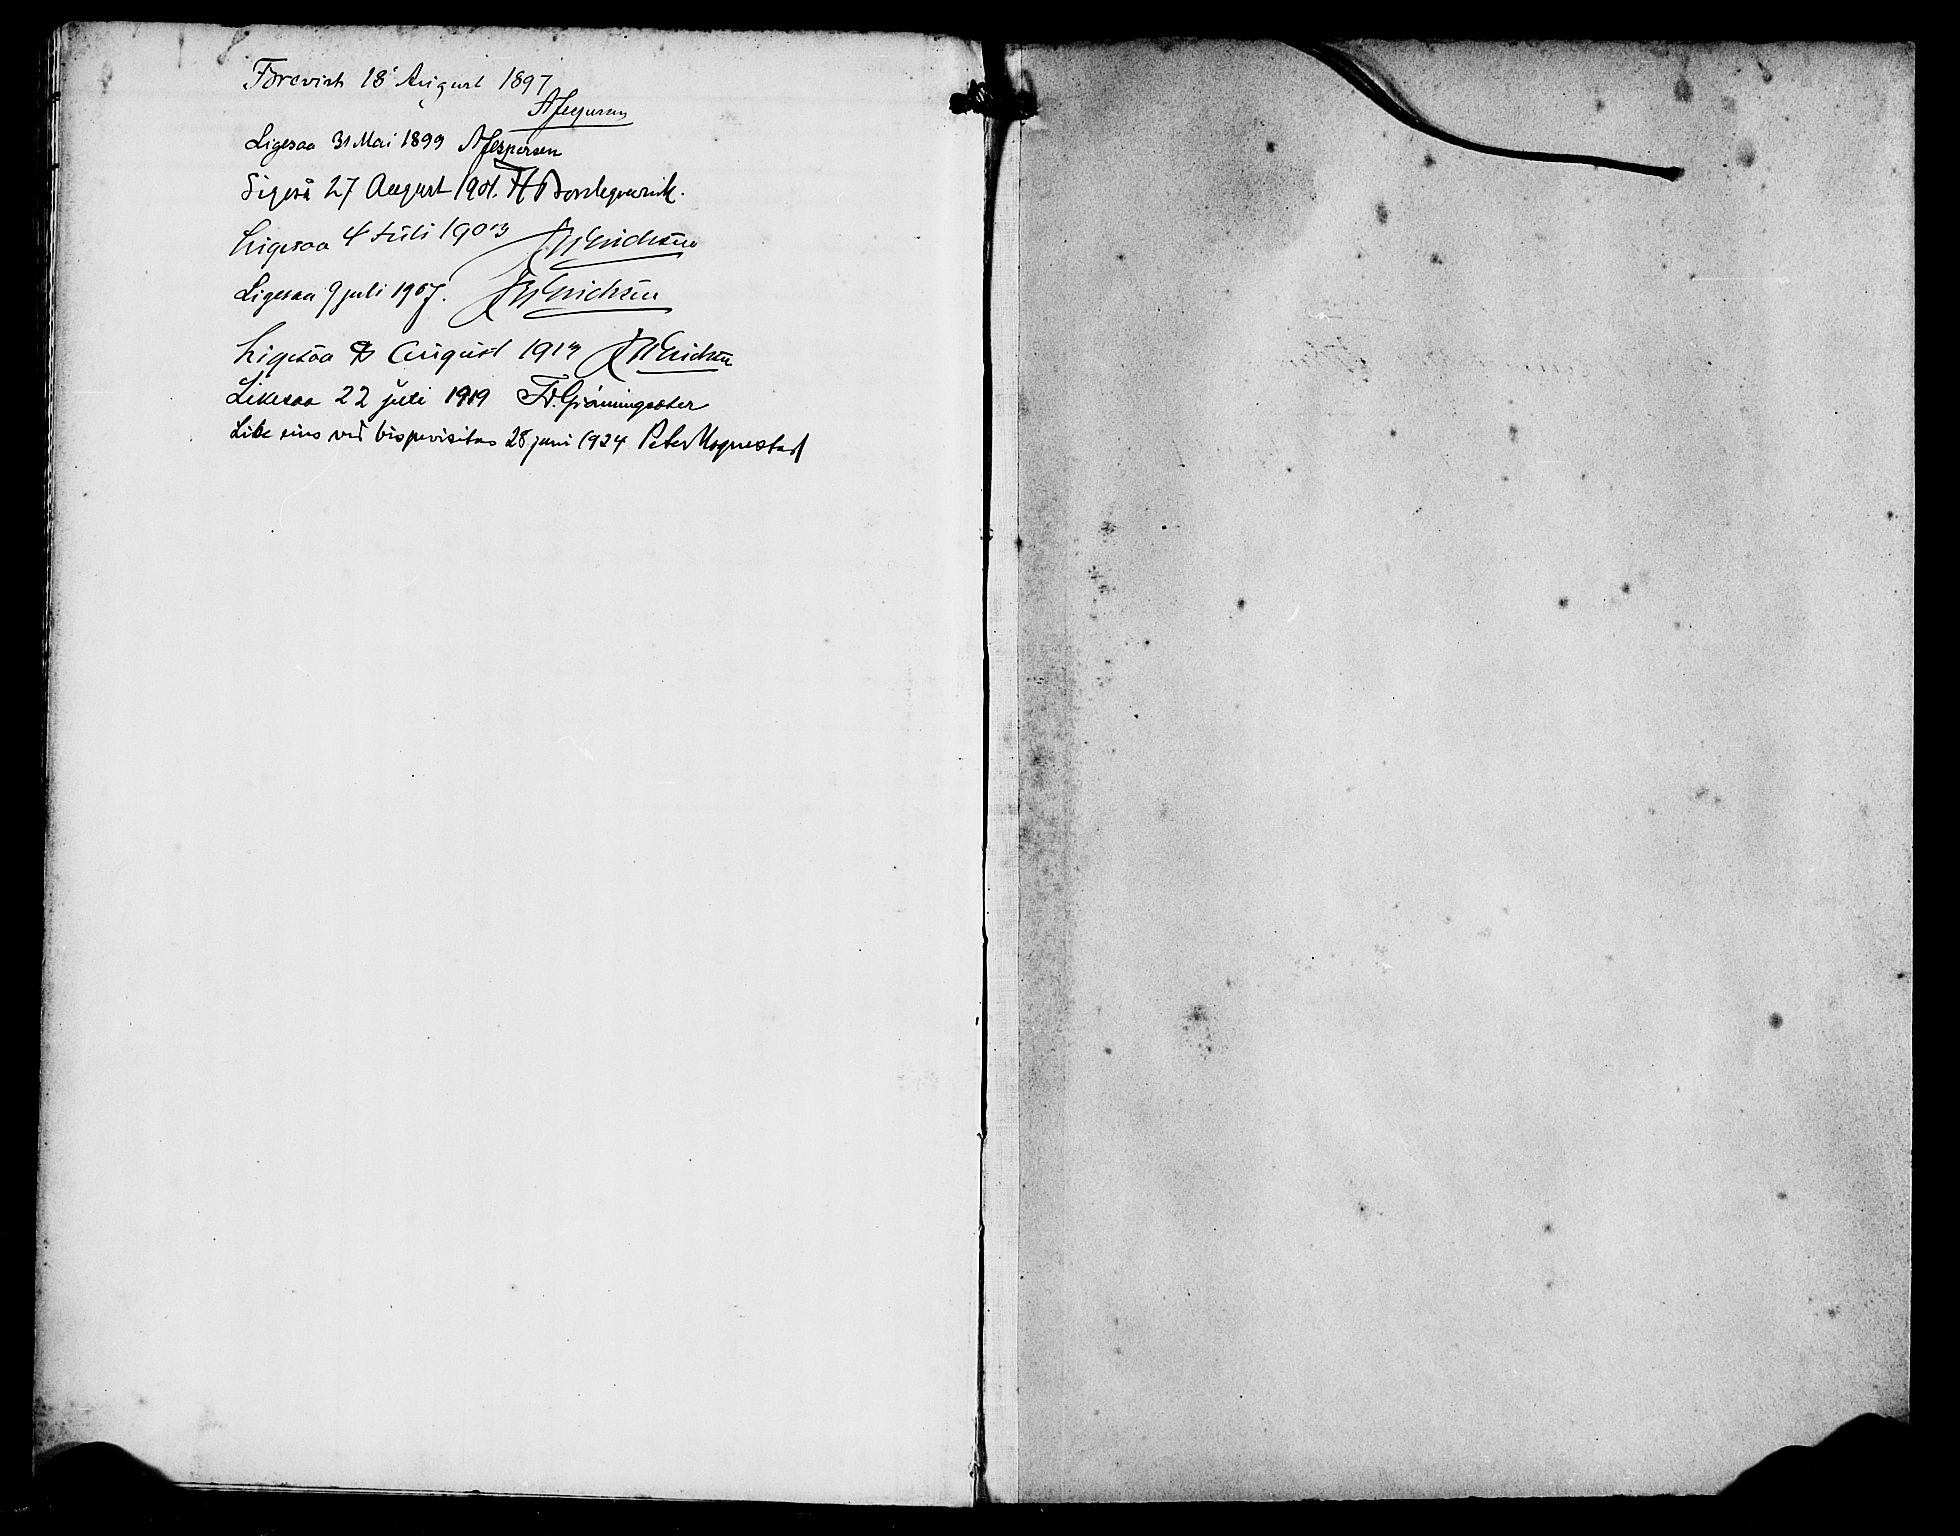 Forevist 18' August 1897
AJespersen
Ligesaa 31 Mai 1899 AJespersen
Ligeså 27 August 1901.
Ligesaa 4 Juli 1903 Erichsen
Ligesaa 9 juli 1907. Erichsen
Ligesaa August 1913 Erichsen
Likesaa 22 juli 1919 Fr. Grönningsæter
Like eins ved bispevisitas 28 juni 1924 Peter Hognestad